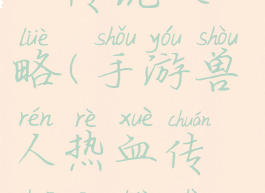 lüè shǒu yóu shòu
略(手游兽
rén rè xuè chuán
人热血传